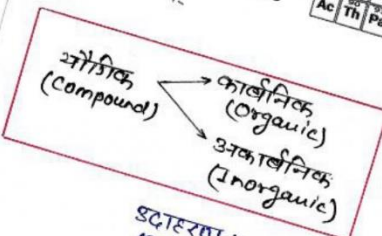 Ac Th Pa
यौगिक
(Compound)
कार्बनिक
(Organic)
अकार्बनिक
(Inorganic)
उदाहरण